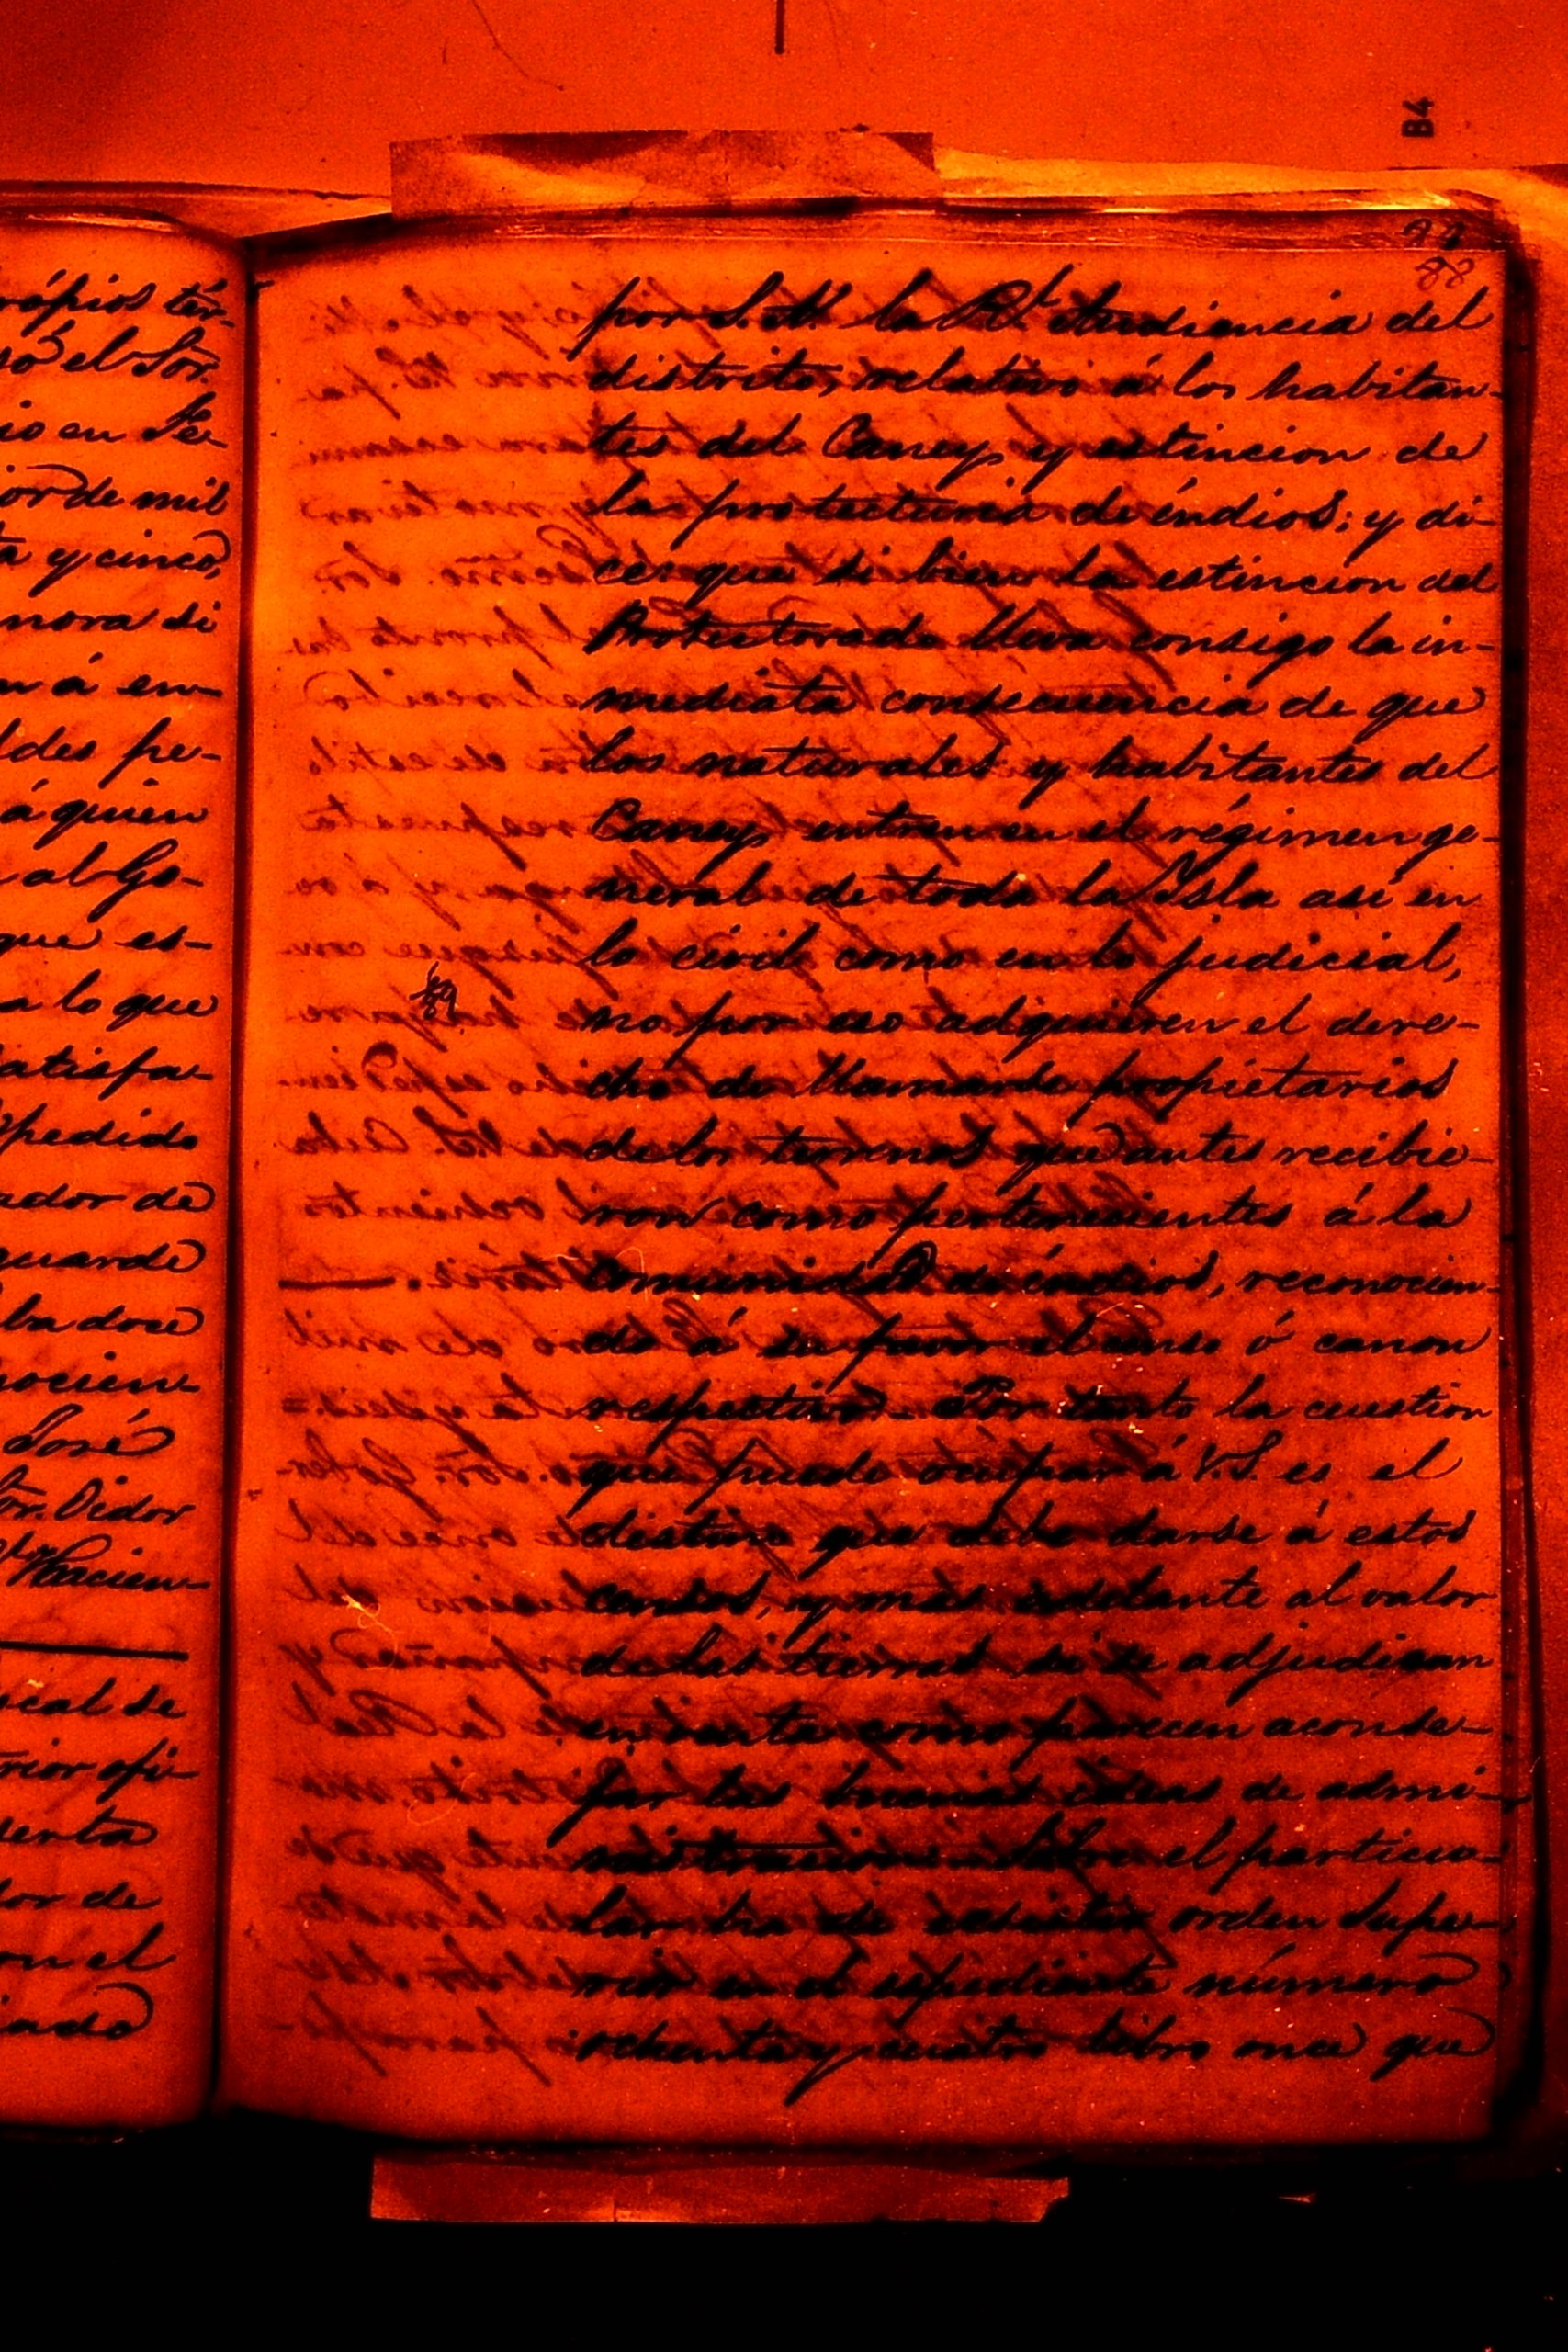 B4
88
rópios tér-
só el Sor.
io en Se-
or de mil
ta y cinco,
nora si
n á en-
ldes pe-
á quien
al Go-
que es-
a lo que
atisfa-
pedido
ador de
guarde
ba doce
nocien-
José
or. Oidor
Hacien-
scal de
rior ofi-
uenta
dor de
on el
iado
por S.A. la Rl. Audiencia del
distrito, relativo á los habitan-
tes del Caney y estincion de
la protecturia de índios; y di-
ce: que si bien la estincion del
Protectorado lleva consigo la in-
mediata consecuencia de que
los naturales y habitantes del
Caney entren en el régimen ge-
neral de toda la Ysla asi en
lo civil como en lo judicial,
no por eso adquieren el dere-
cho de llamarse propietarios
de los terrenos que antes recibie-
ron como pertenecientes á la
comunidad de índios, reconocien-
do á su favor el censo ó canon
respectivo. Por tanto la cuestion
que puede ócupar á V.S. es el
destino que debe darse á estos
censos, y mas adelante al valor
de las tierras si se adjudican
en venta como parecen aconse-
jar las buenas ideas de admi-
nistracion. Sobre el particu-
lar ha de ecsistir orden supe-
rior en el espediente número
ochenta y cuatro libro once que
89